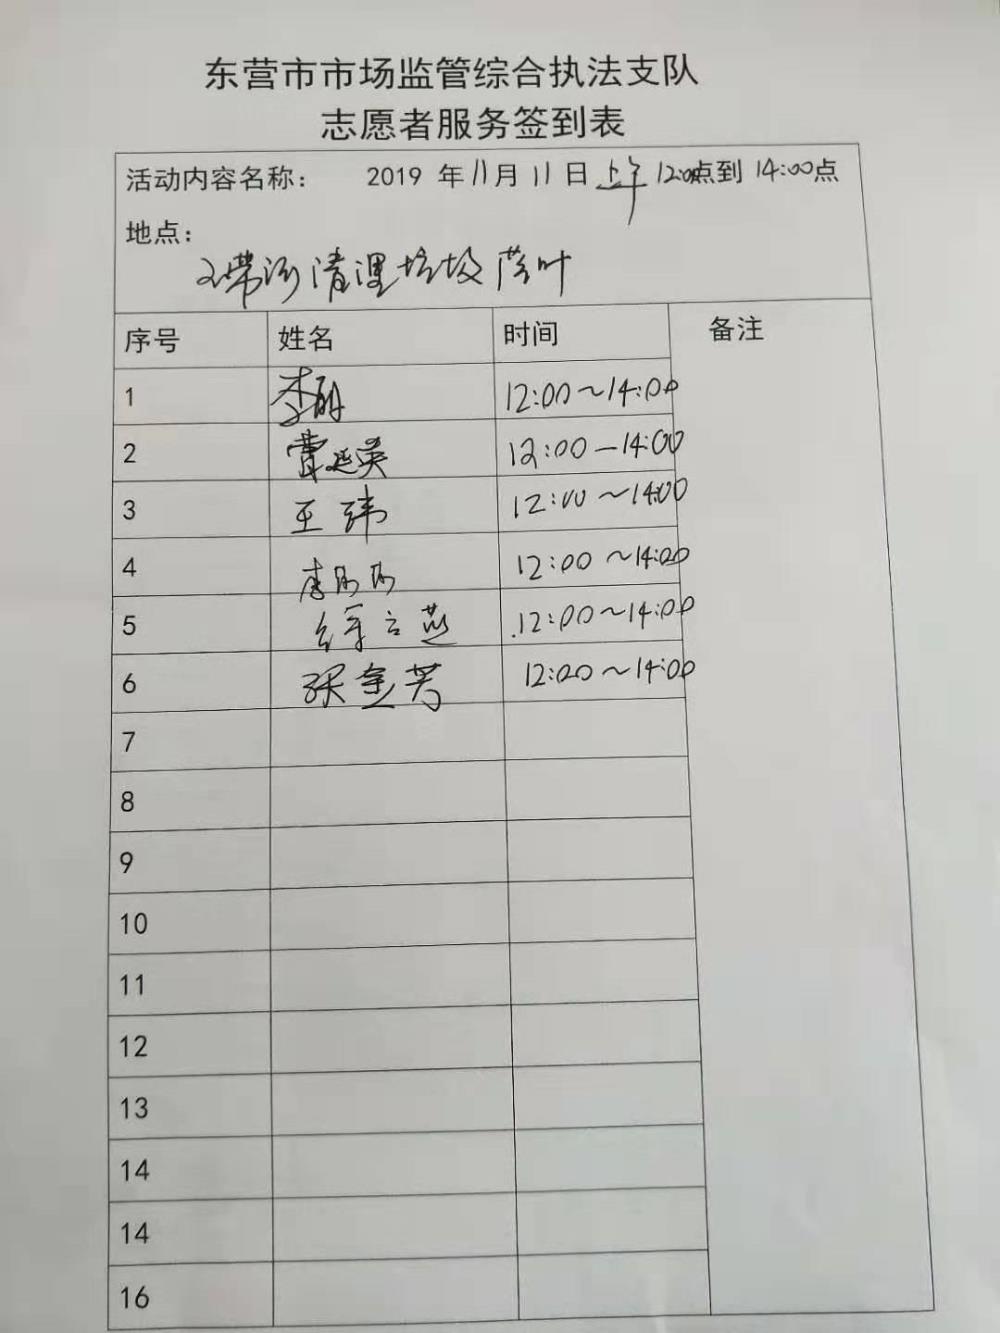 东营市市场监管综合执法支队
志愿者服务签到表
活动内容名称： 2019 年 11 月 11 日 上午 12:00点到 14:00点
地点：
清理垃圾落叶
序号 姓名 时间 备注
1 12:00～14:00
2 12:00—14:00
3 王玮 12:00～14:00
4 12:00～14:00
5 12:00～14:00
6 张金芳 12:00～14:00
7
8
9
10
11
12
13
14
14
16